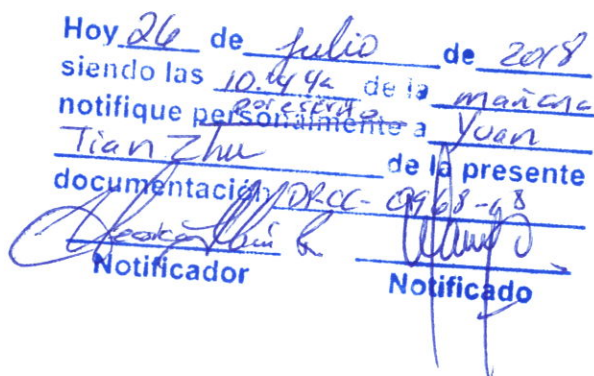 Hoy 26 de Julio de 2018
siendo las 10:44a de la mañana
por escrito
notifique personalmente a Yuan
Tian Zhu de la presente
documentación DRCC-0968-18
Notificador Notificado